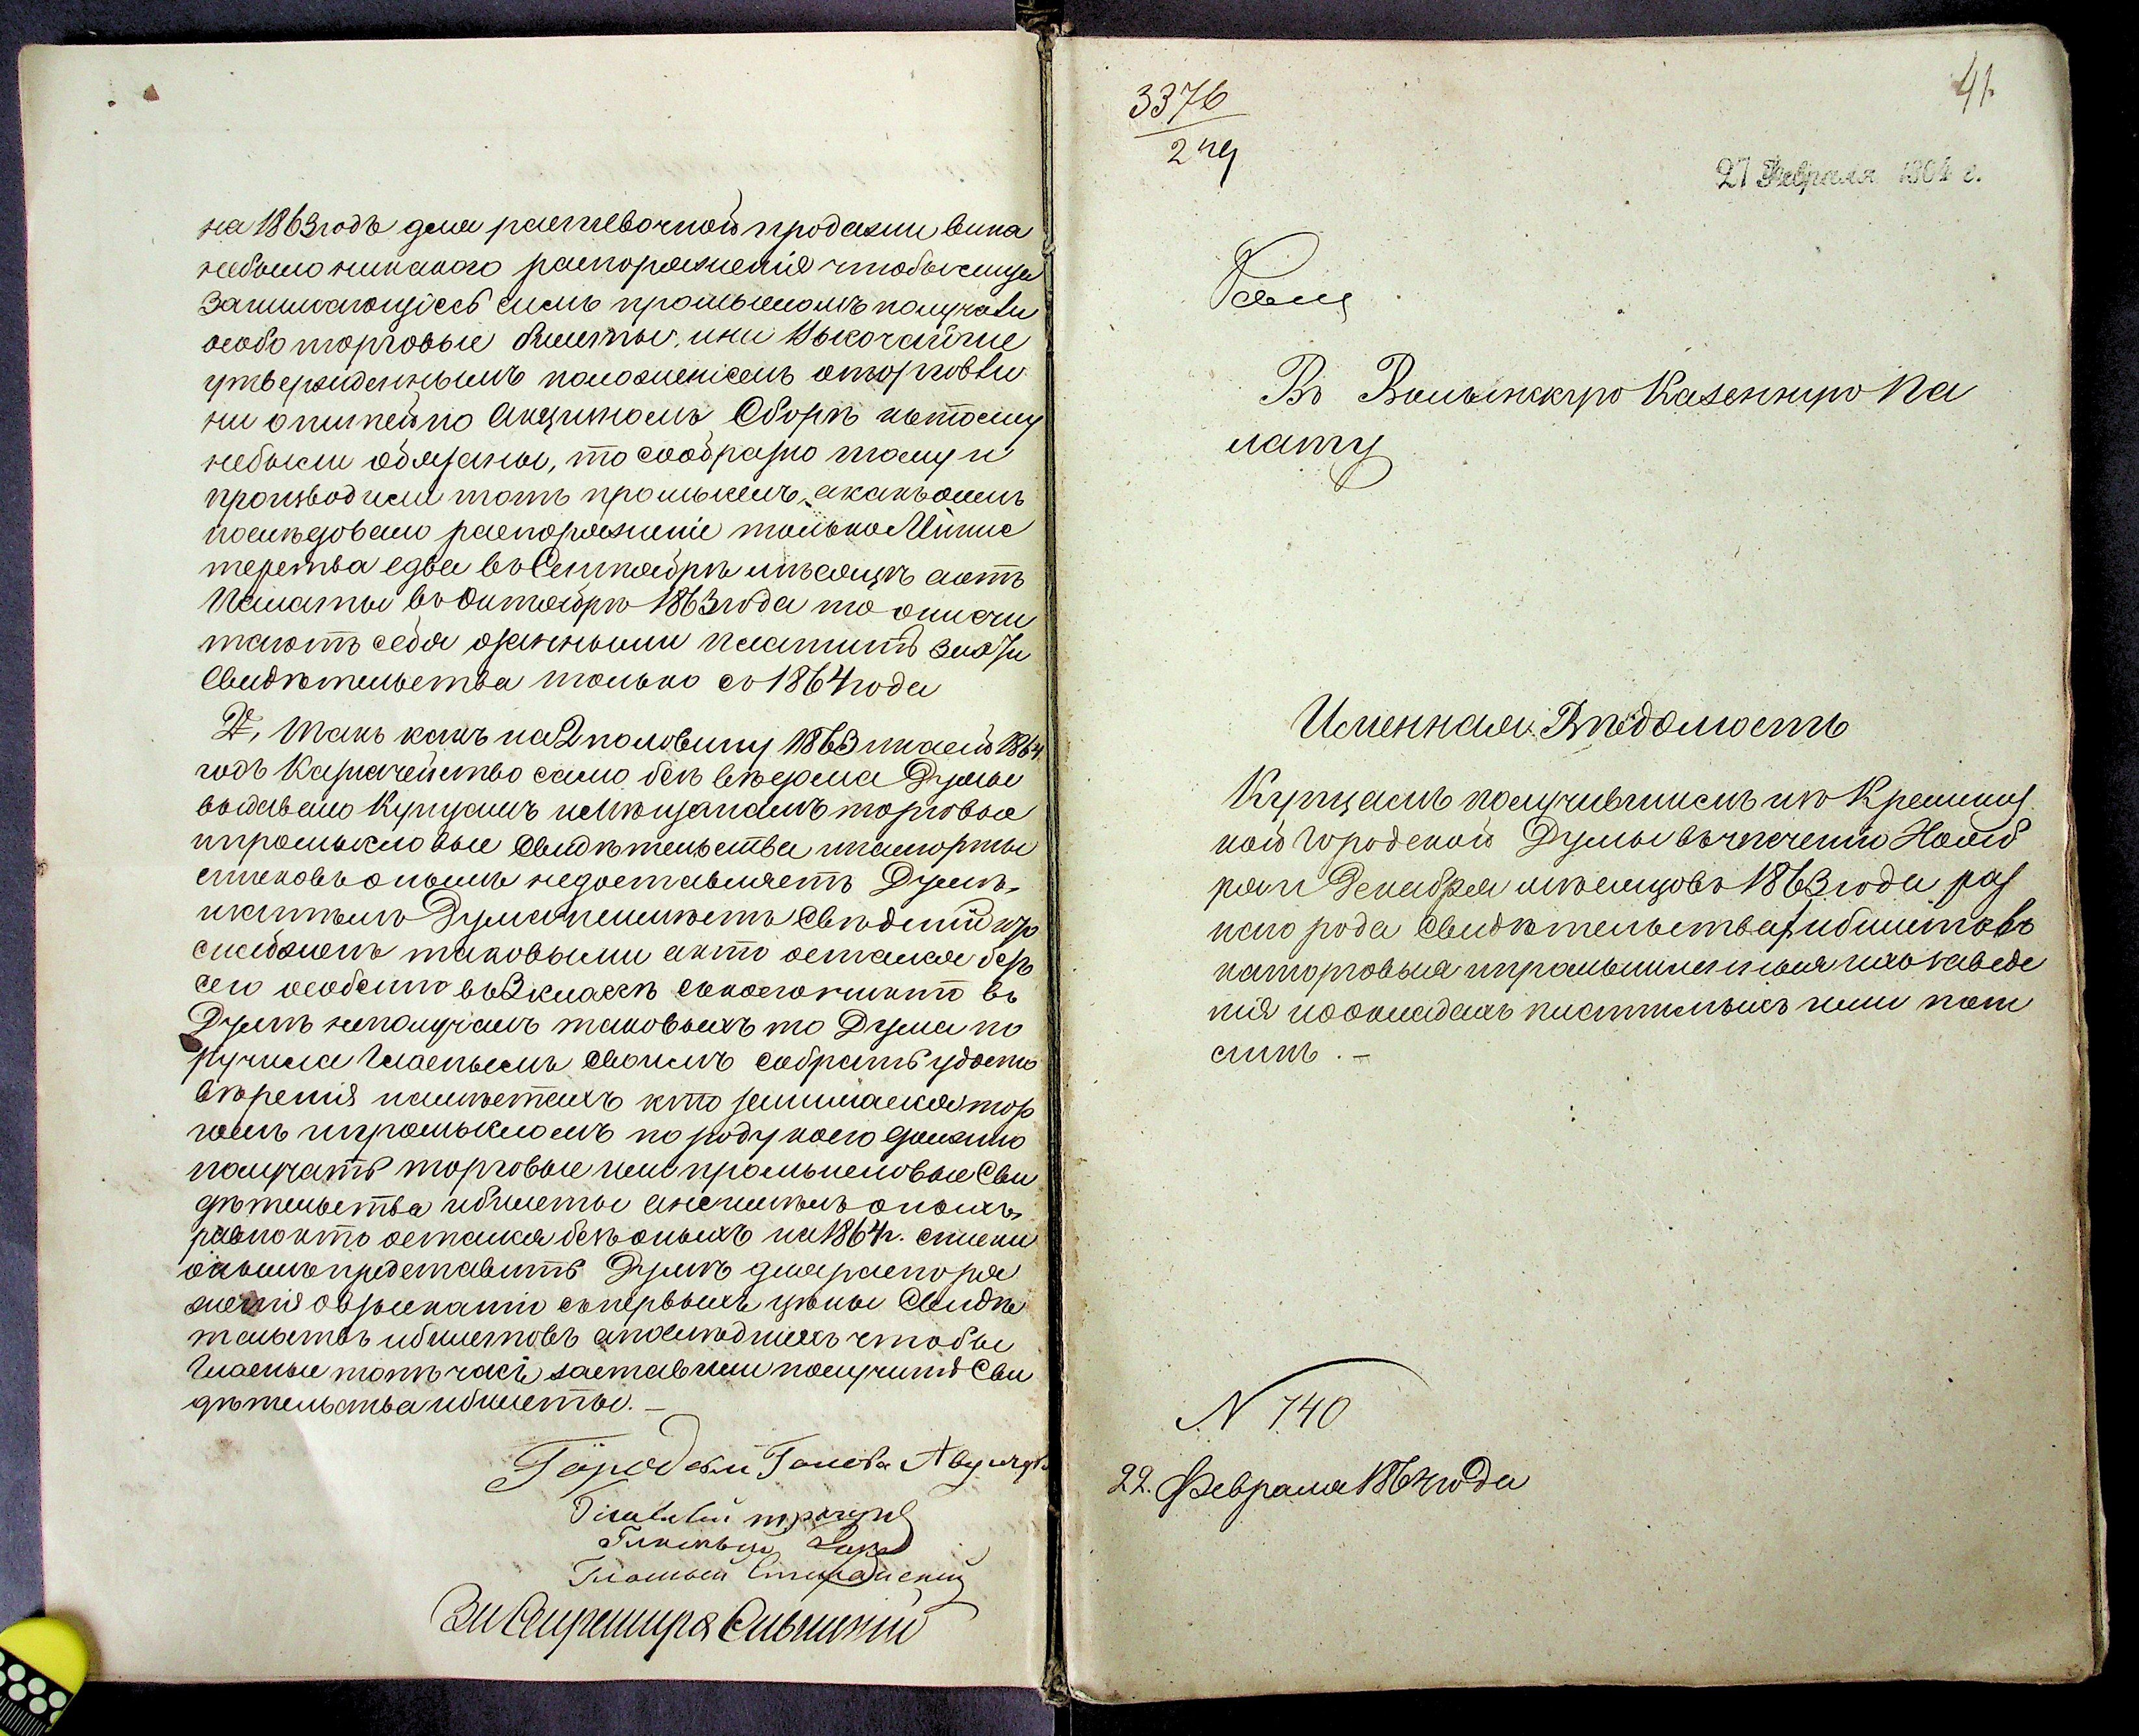 на 1863 годъ для распивочной продажи вина
небыло никакого распоряженія чтобы лица
занимающіесь симъ промысломъ получали
особо торговые билеты, ини Высочайше
утвержденнымъ положеніемъ оторговли
ни опитейно Акцизномъ Сборѣ кътому
небыли обязаны, то сообразно тому и
производили тотъ промыселъ, а какъ
последовало распоряженіе только Минис
терства едва въ Сентябрѣ мѣсяцѣ аотъ
Палаты въ Октябрѣ 1863 года то они счи
таютъ себя платить за
Свидѣтельства только съ 1864 года
2, Такъ какъ на 2 половину 1863 и 1864
годъ Казначейство само безъ вѣдома Думы
выдавало Купцамъ имѣщанамъ торговые
ипромысловые Свидѣтельства
списковъ онымъ недоставляетъ Думѣ,
и затѣмъ Дума неимѣетъ Свѣденій кто
снабженъ таковыми а кто остался безъ
сего особенно
Думѣ неполучалъ таковыхъ то Дума по
ручила Гласнымъ своимъ собрать удосто
вѣренія намѣстахъ кто занимается тор
гомъ ипромысломъ по роду коего должно
получать торговые или промысловые Сви
дѣтельства ибилеты оныхъ,
равно кто остался безъ оныхъ на 1864 г. списки
онымъ представить Думѣ для распоря
женія овзысканіи съпервыхъ цѣны Свидѣ
тельствъ ибилетовъ апослѣднихъ чтобы
Гласные тотъ часъ заставили получить Сви
дѣтельства ибилеты. —
Городской Голова
Гласный
Гласный
Гласный
За Секретаря
41
3376
27 Февраля 1864 г.
Въ Волынскую Казенную Па
лату
Именная Вѣдомость
Купцамъ получившимъ изъ Кременец
кой Городской Думы вътеченіи Нояб
ря и Декабря мѣсяцовъ 1863 года раз
наго рода Свидѣтельства ибилетовъ
наторговыя ипромышленныя ихъ заведе
нія поокладамъ
N 740
22. Февраля 1864 года